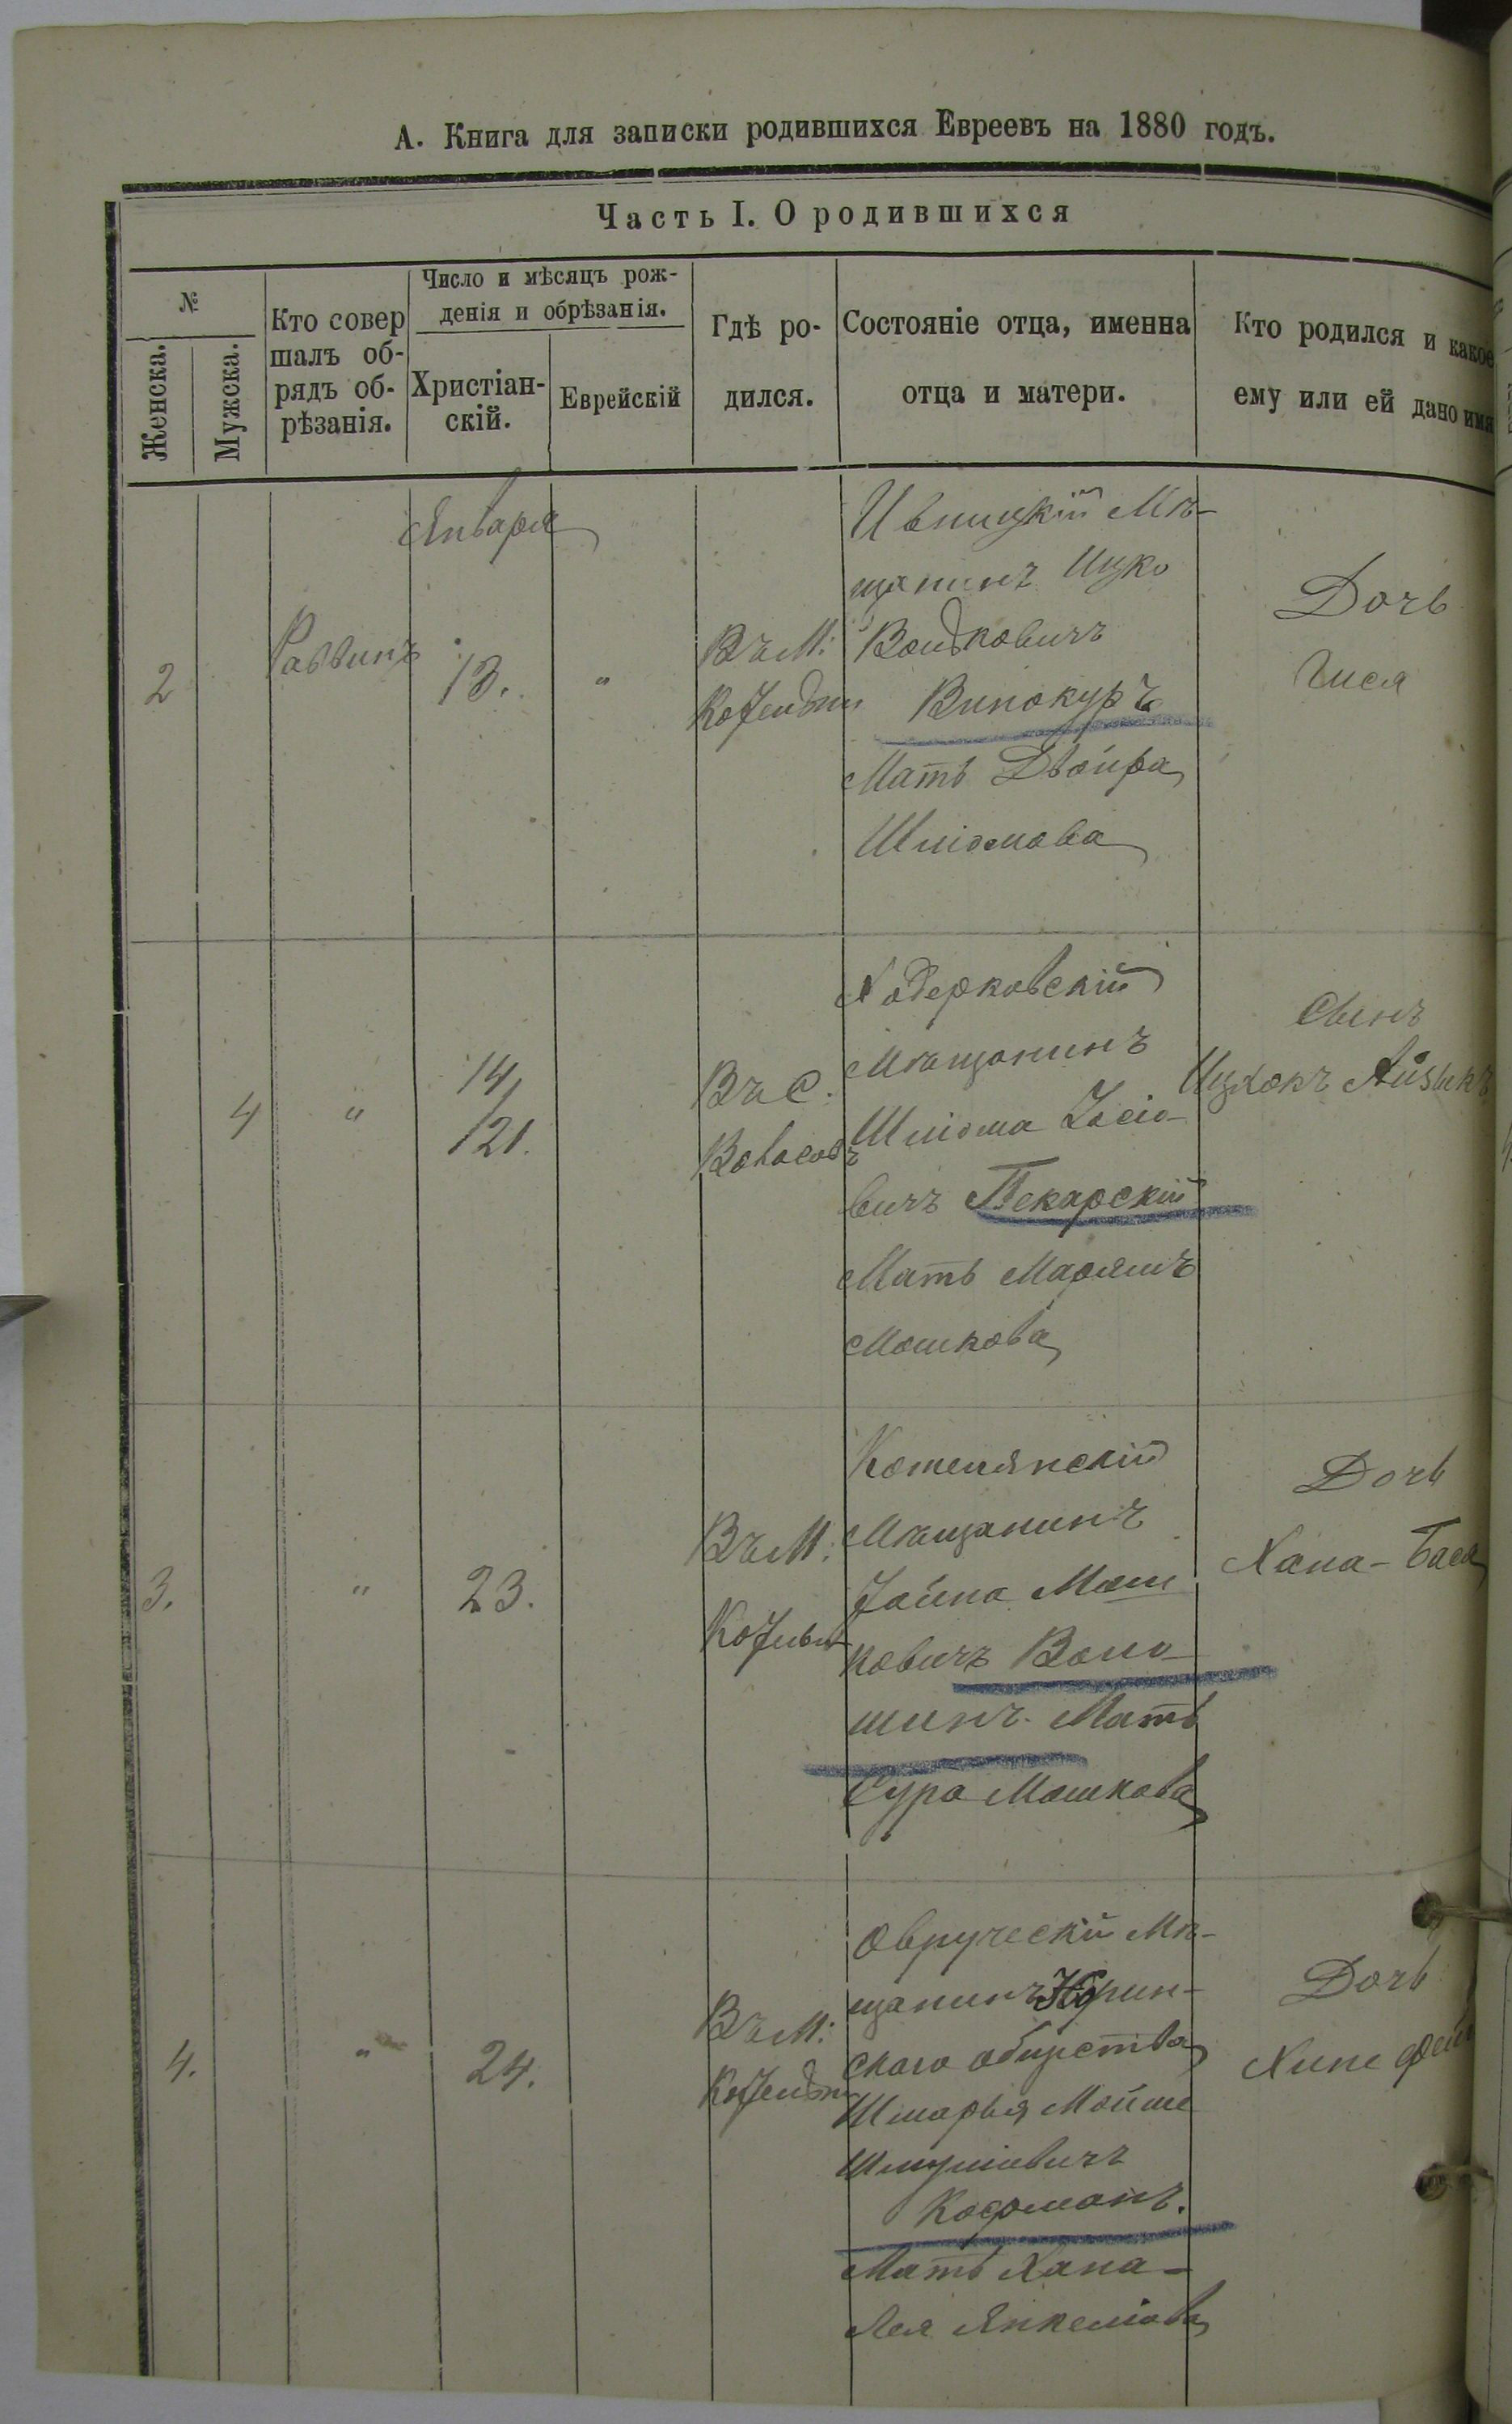 А. Книга для записки родившихся Евреевъ на 1880 годъ.
Часть I. О родившихся
№
Женска.
Мужска.
Кто совер
шалъ об-
рядъ об-
рѣзанія.
Число и мѣсяцъ рож-
денія и обрѣзанія.
Христіан-
скій.
Еврейскій
Гдѣ ро-
дился.
Состояніе отца, именна
отца и матери.
Кто родился и какое
ему или ей дано имя
2
Раввинъ
Января
13.
"
Въ М:
Ивницкій Мѣ-
щанинъ Ицко
Вольковичъ
Винокуръ
Мать Двойра
Шліомова
Дочь
Гися
4
"
14/
/21.
Въ С.
Ходорковскій
Мѣщанинъ
Шліома Іосіо-
вичъ Пекарскій
Мать Маріямъ
Мошкова
Сынъ
Ицхокъ Айзыкъ
3.
"
23.
Въ М:
Котелянскій
Мѣщанинъ
Іойна Мош
ковичъ Воло-
шинъ. Мать
Сура Мошкова
Дочь
Хана-Бася
4.
"
24.
Въ М:
Овручскій Мѣ-
щанинъ Норин-
скаго общества
Шмарья Мойше
Шмуліовичъ
Кофманъ.
Мать Хана-
Лея Янкеліова
Дочь